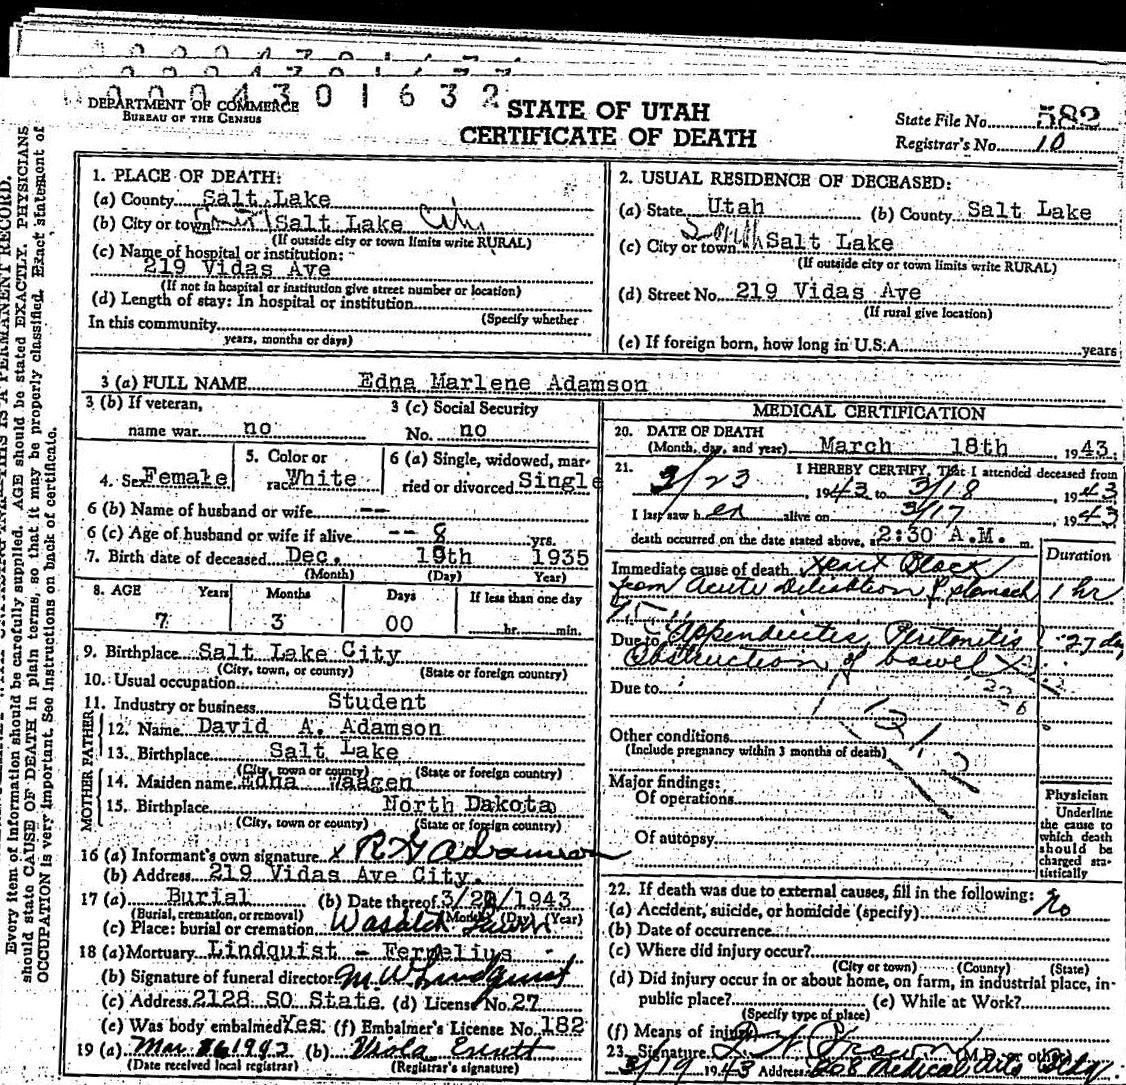 0004301632
DEPARTMENT OF COMMERCE
BUREAU OF THE CENSUS
STATE OF UTAH
CERTIFICATE OF DEATH
State File No. 582
Registrar's No. 10
1. PLACE OF DEATH:
(a) County Salt Lake
(b) City or town Salt Lake City
(If outside city or town limits write RURAL)
(c) Name of hospital or institution:
219 Vidas Ave
(If not in hospital or institution give street number or location)
(d) Length of stay: In hospital or institution
(Specify whether
In this community
years, months or days)
2. USUAL RESIDENCE OF DECEASED:
(a) State Utah (b) County Salt Lake
(c) City or town South Salt Lake
(If outside city or town limits write RURAL)
(d) Street No. 219 Vidas Ave
(If rural give location)
(e) If foreign born, how long in U.S.A. years
3 (a) FULL NAME Edna Marlene Adamson
3 (b) If veteran,
name war no
3 (c) Social Security
No. no
4. Sex Female
5. Color or
race White
6 (a) Single, widowed, mar-
ried or divorced Single
6 (b) Name of husband or wife --
6 (c) Age of husband or wife if alive -- yrs.
7. Birth date of deceased Dec. 19th 1935
(Month) (Day) Year)
8. AGE Years Months Days If less than one day
7 3 00 hr. min.
9. Birthplace Salt Lake City
(City, town, or county) (State or foreign country)
10. Usual occupation
11. Industry or business Student
FATHER
12. Name David A. Adamson
13. Birthplace Salt Lake
(City, town or county) (State or foreign country)
MOTHER
14. Maiden name Edna Waagen
15. Birthplace North Dakota
(City, town or county) (State or foreign country)
16 (a) Informant's own signature x Adamson
(b) Address 219 Vidas Ave City.
17 (a) Burial (b) Date thereof 3/2 /1943
(Burial, cremation, or removal) (Month) (Day) (Year)
(c) Place: burial or cremation Wasatch Lawn
18 (a) Mortuary Lindquist - Fernelius
(b) Signature of funeral director M W Lindquist
(c) Address 2128 SO State (d) License No. 27
(e) Was body embalmed Yes (f) Embalmer's License No. 182
19 (a) Mar 1943 (b) Viola
(Date received local registrar) (Registrar's signature)
MEDICAL CERTIFICATION
20. DATE OF DEATH
(Month, day, and year) March 18th 1943.
21. I HEREBY CERTIFY, That I attended deceased from
3/23, 1943 to 3/18, 1943
I last saw her alive on 3/17, 1943
death occurred on the date stated above, at 2:30 A.M. m.
Duration
Immediate cause of death Heart Block
from Acute Dilation of stomach 1 hr
Due to Appendicitis, Peritonitis 27 day
Obstruction of bowel
Due to
1212
Other conditions
(Include pregnancy within 3 months of death)
Major findings:
Of operations
Of autopsy
Physician
Underline
the cause to
which death
should be
charged sta-
tistically
22. If death was due to external causes, fill in the following:
(a) Accident, suicide, or homicide (specify) No
(b) Date of occurrence
(c) Where did injury occur?
(City or town) (County) (State)
(d) Did injury occur in or about home, on farm, in industrial place, in-
public place? (e) While at Work?
(Specify type of place)
(f) Means of injury
23. Signature (M.D. or other)
3/19 1943 Address 208 Medical Arts Bldg.
Every item of information should be carefully supplied. AGE should be stated EXACTLY. PHYSICIANS
should state CAUSE OF DEATH in plain terms, so that it may be properly classified. Exact statement of
OCCUPATION is very important. See instructions on back of certificate.